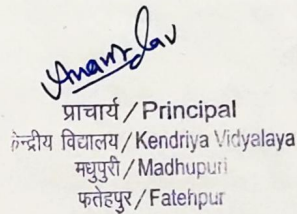 प्राचार्य / Principal
केन्द्रीय विद्यालय / Kendriya Vidyalaya
मधुपुरी / Madhupuri
फतेहपुर / Fatehpur